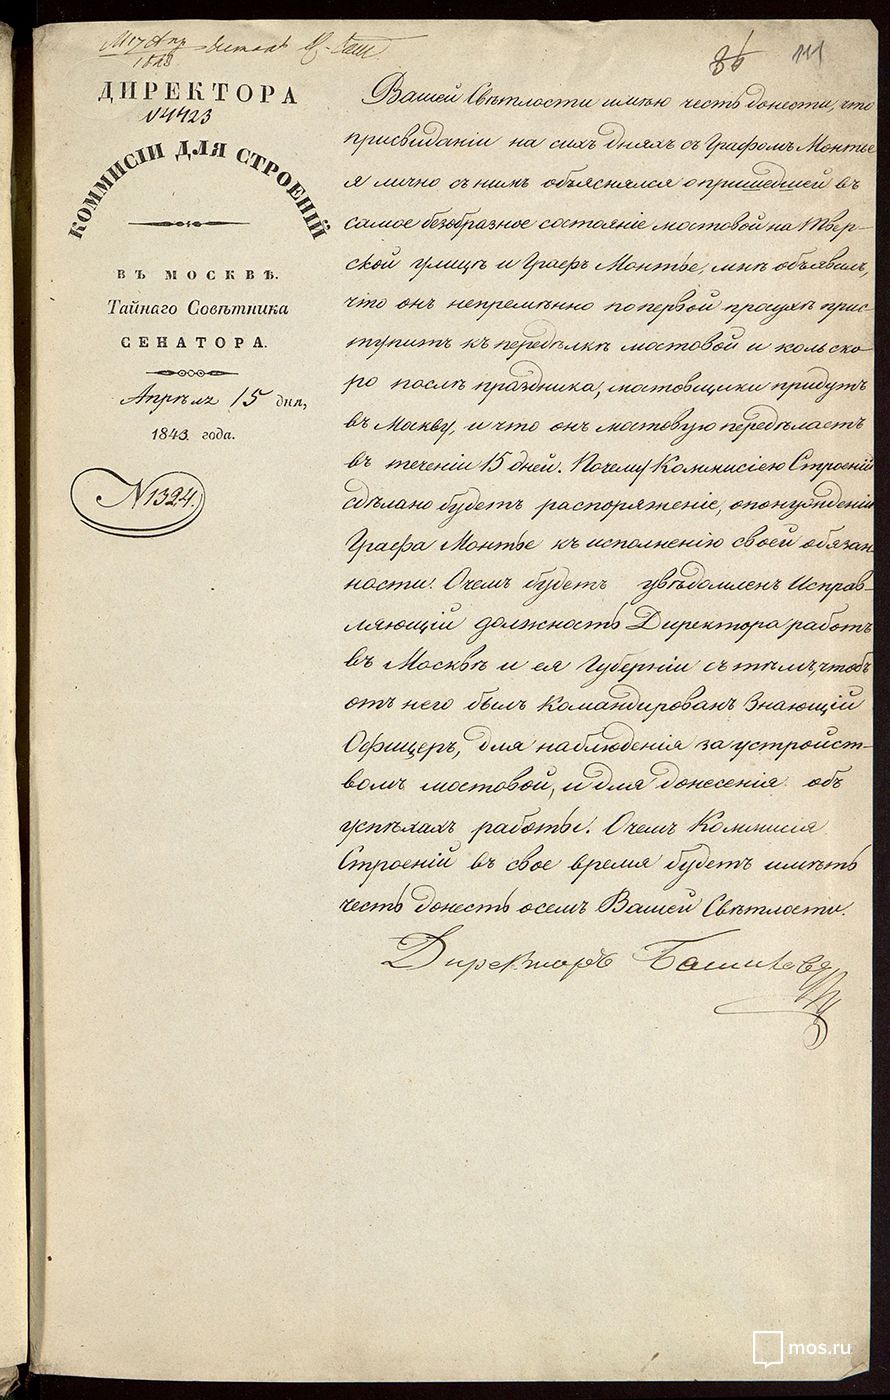 86 111
ДИРЕКТОРА
№4423
КОММИСІИ ДЛЯ СТРОЕНІЙ
ВЪ МОСКВѢ.
Тайнаго Совѣтника
СЕНАТОРА.
Апрѣля 15 дня,
1843 года.
№1324.
Вашей Свѣтлости имѣю честь донести, что
присвиданіи на сихъ дняхъ съ Графомъ Монтье
я лично съ нимъ объяснялся о пришедшей въ
самое безобразное состояніе мостовой на Твер-
ской улицѣ и Графъ Монтье, мнѣ объявилъ,
что онъ непремѣнно по первой просухѣ прис-
тупитъ къ передѣлкѣ мостовой и коль ско-
ро послѣ праздника, мостовщики придутъ
въ Москву, и что онъ мостовую передѣлаетъ
въ теченіи 15 дней. Почему Коммисіею Строеній
сдѣлано будетъ распоряженіе, о понужденіи
Графа Монтье къ исполненію своей обязан
ности. О чемъ будетъ увѣдомленъ Исправ-
ляющій должность Директора работъ
въ Москвѣ и ея Губерніи съ тѣмъ, чтобъ
отъ него былъ командированъ Знающій
Офицеръ, для наблюденія за устройст-
вомъ мостовой, и для донесенія объ
успѣхахъ работы. О чемъ Коммисія
Строеній въ свое время будетъ имѣть
честь донесть осемъ Вашей Свѣтлости.
Директоръ Башиловъ
mos.ru